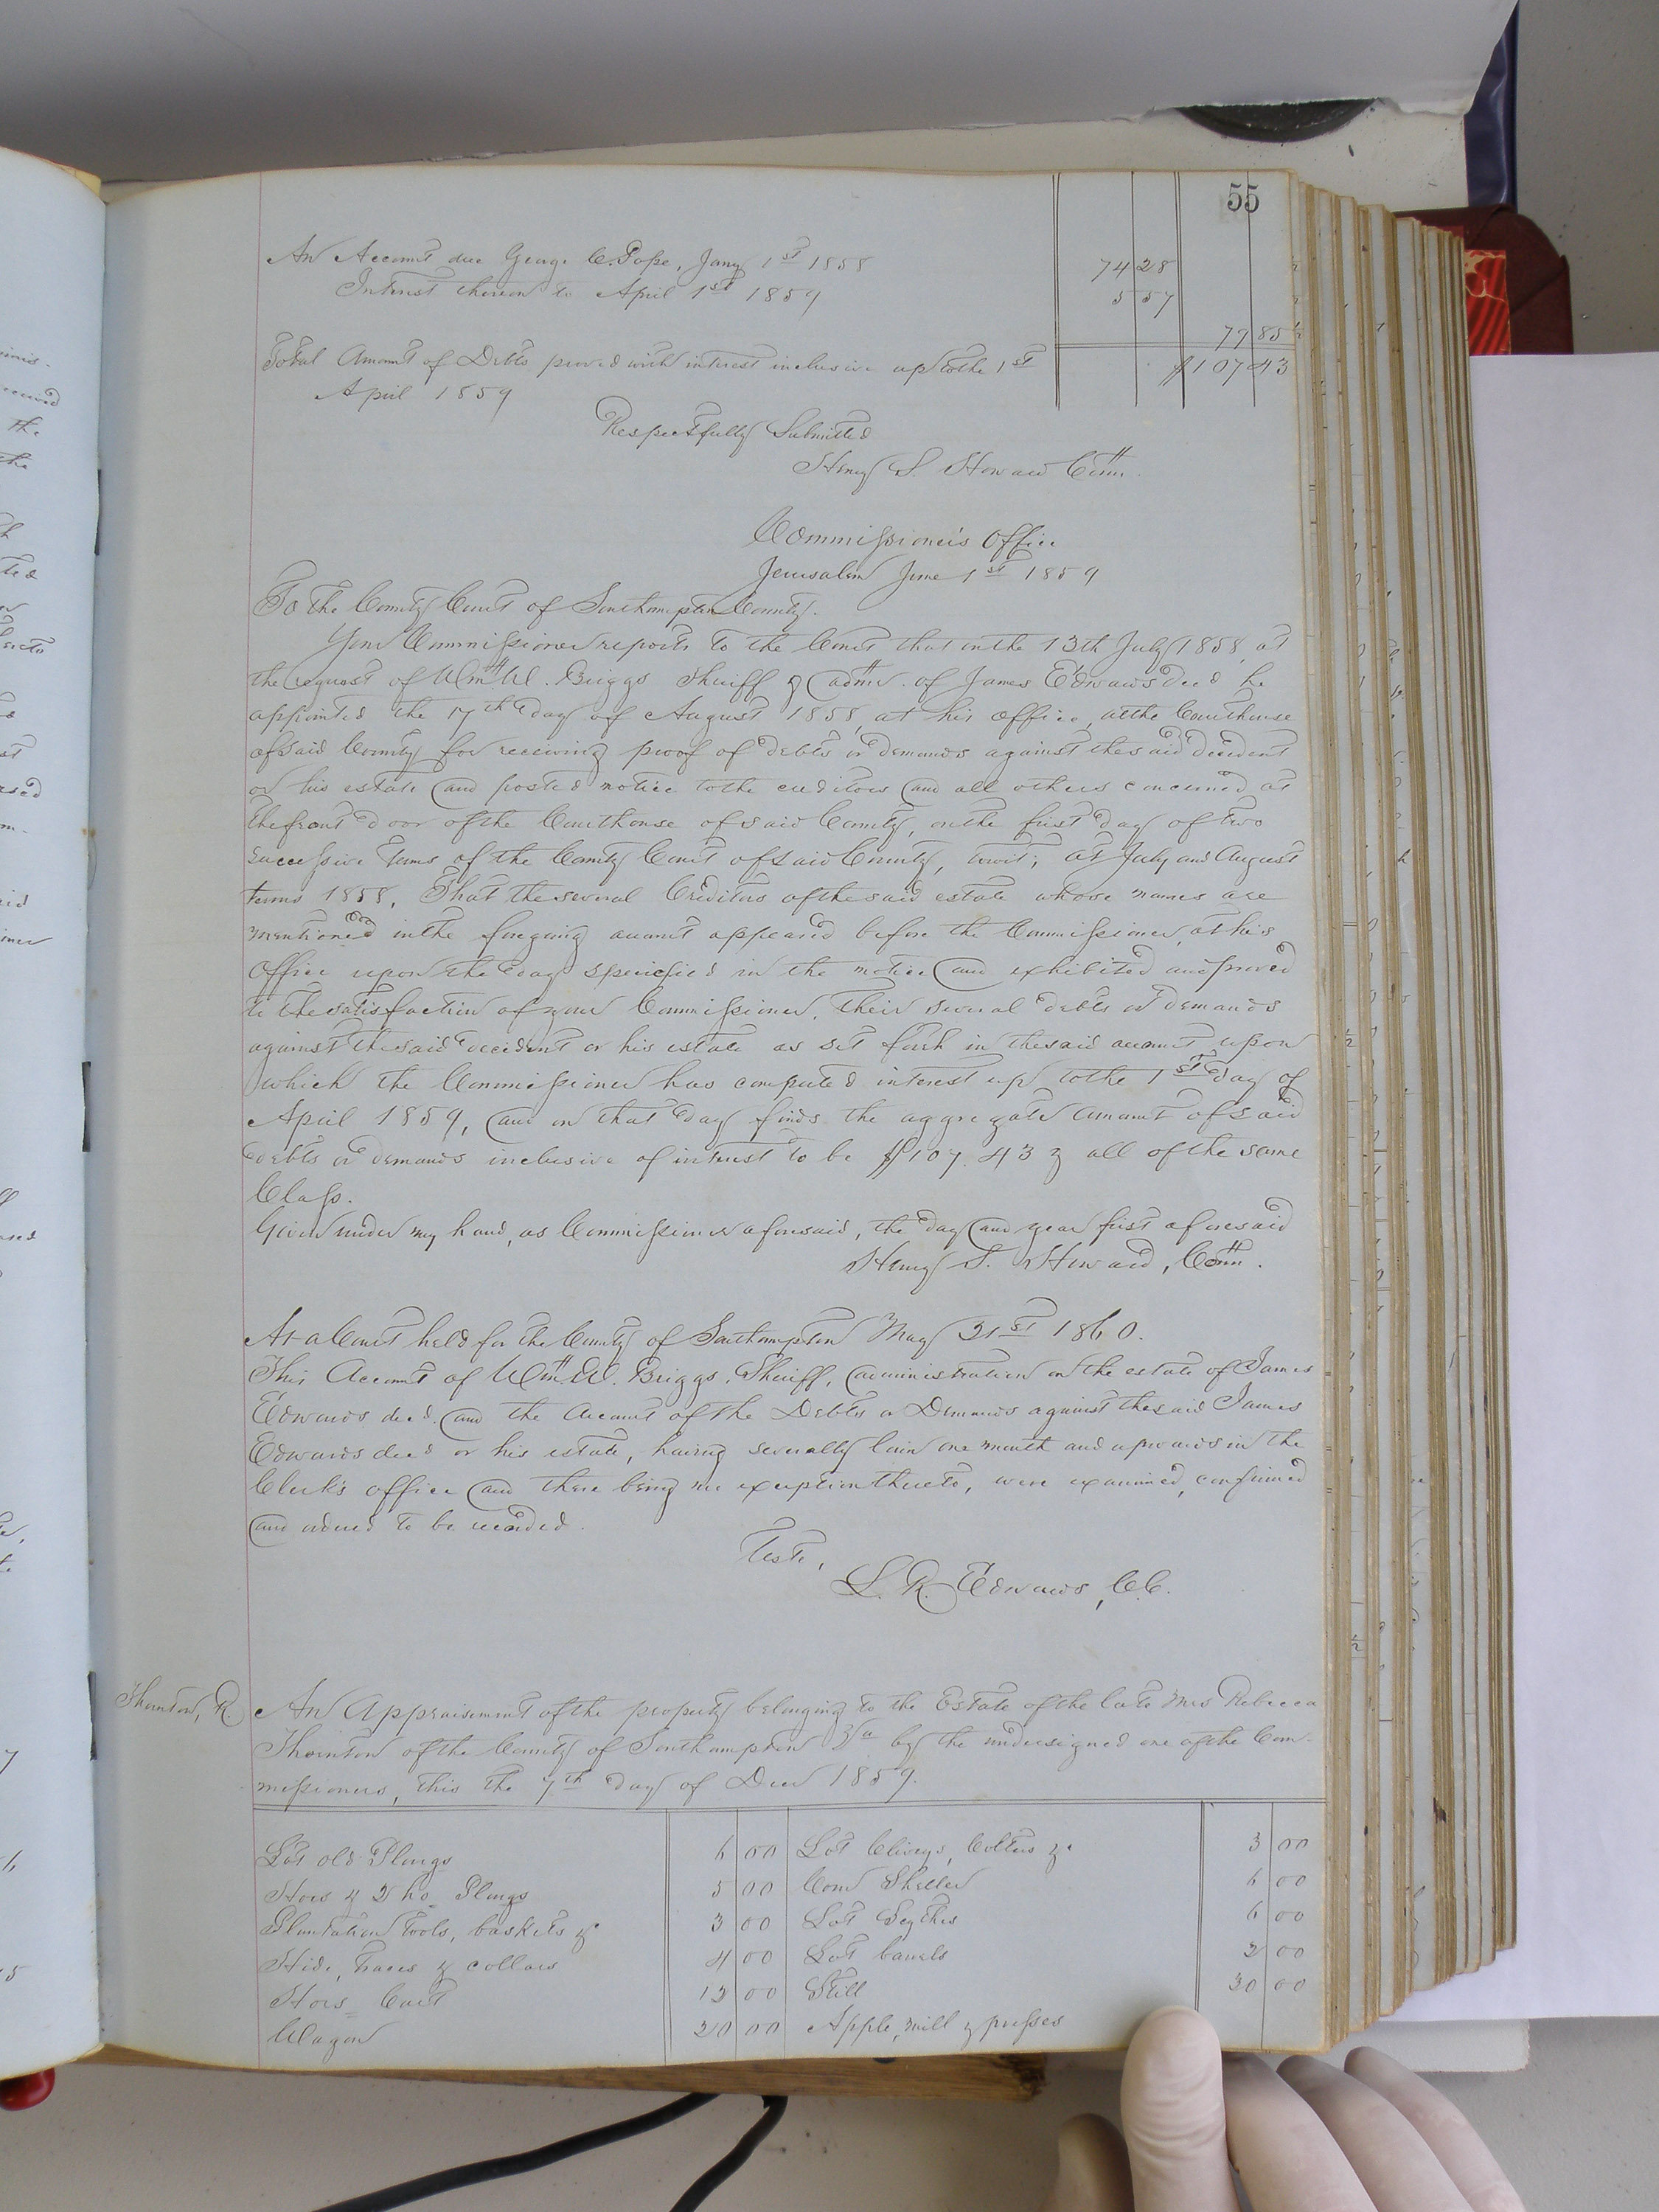 55
An Account due George C. Pope, Jany 1st 1858 74 28
Interest thereon to April 1st 1859 5 57
79 85
Total Amount of Debts proved with interest inclusive up to the 1st $107 43
April 1859
Respectfully Submitted
Henry S. Howard Comr.
Commissioner's Office
Jerusalem June 1st 1859
To the County Court of Southampton County.
Your Commissioner reports to the Court that on the 13th July 1858, at
the request of Wm. W. Briggs Sheriff & admr. of James Edwards decd he
appointed the 17th day of August 1858, at his office, at the Courthouse
of said County for receiving proof of debts or demands against the said decedent
or his estate and posted notice to the creditors and all others concerned, at
the front door of the Courthouse of said County, on the first day of two
successive terms of the County Court of said County, towit; at July and August
terms 1858, That the several Creditors of the said estate whose names are
mentioned in the foregoing account appeared before the Commissioner, at his
office upon the day specified in the notice and exhibited and proved
to the satisfaction of your Commissioner, their several debts or demands
against the said decedent or his estate as set forth in the said account, upon
which the Commissioner has computed interest up to the 1st day of
April 1859, and on that day finds the aggregate amount of said
debts or demands inclusive of interest to be $107.43 & all of the same
Class.
Given under my hand, as Commissioner aforesaid, the day and year first aforesaid
Henry S. Howard, Comr.
At a Court held for the County of Southampton May 21st 1860.
This Account of Wm. W. Briggs, Sheriff, administration on the estate of James
Edwards decd. and the Account of the Debts or Demands against the said James
Edwards decd or his estate, having severally lain one month and upwards in the
Clerk's office and there being no exception thereto, were examined, confirmed
and ordered to be recorded.
Teste,
L. R. Edwards, C.C.
Thornton, R.
An Appraisement of the property belonging to the Estate of the late Mrs Rebecca
Thornton of the County of Southampton Va by the undersigned one of the Com-
missioners, this the 7th day of Decr 1859.
Lot old Plougs 6 00 Lot Cliveys, Colters &c 3 00
Hoes & 2 ho. Plougs 5 00 Corn Sheller 6 00
Plantation tools, baskets & 3 00 Lot Scythes 6 00
Hide, traces & collars 4 00 Lot barrels 2 00
Hors Cart 12 00 Still 30 00
Wagon 20 00 Apple, mill & presses